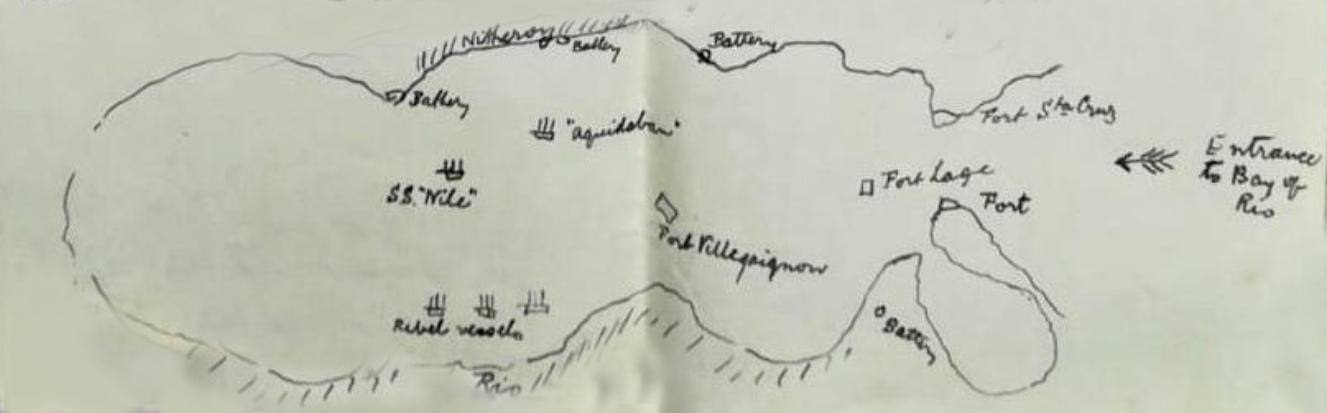 Nitheroy
Battery
Battery
Battery
Fort Sta Cruz
"Aquidaban"
Entrance
to Bay of
Rio
Fort Lage
S.S. "Nile"
Fort
Fort Villegaignon
Rebel vessels
Battery
Rio